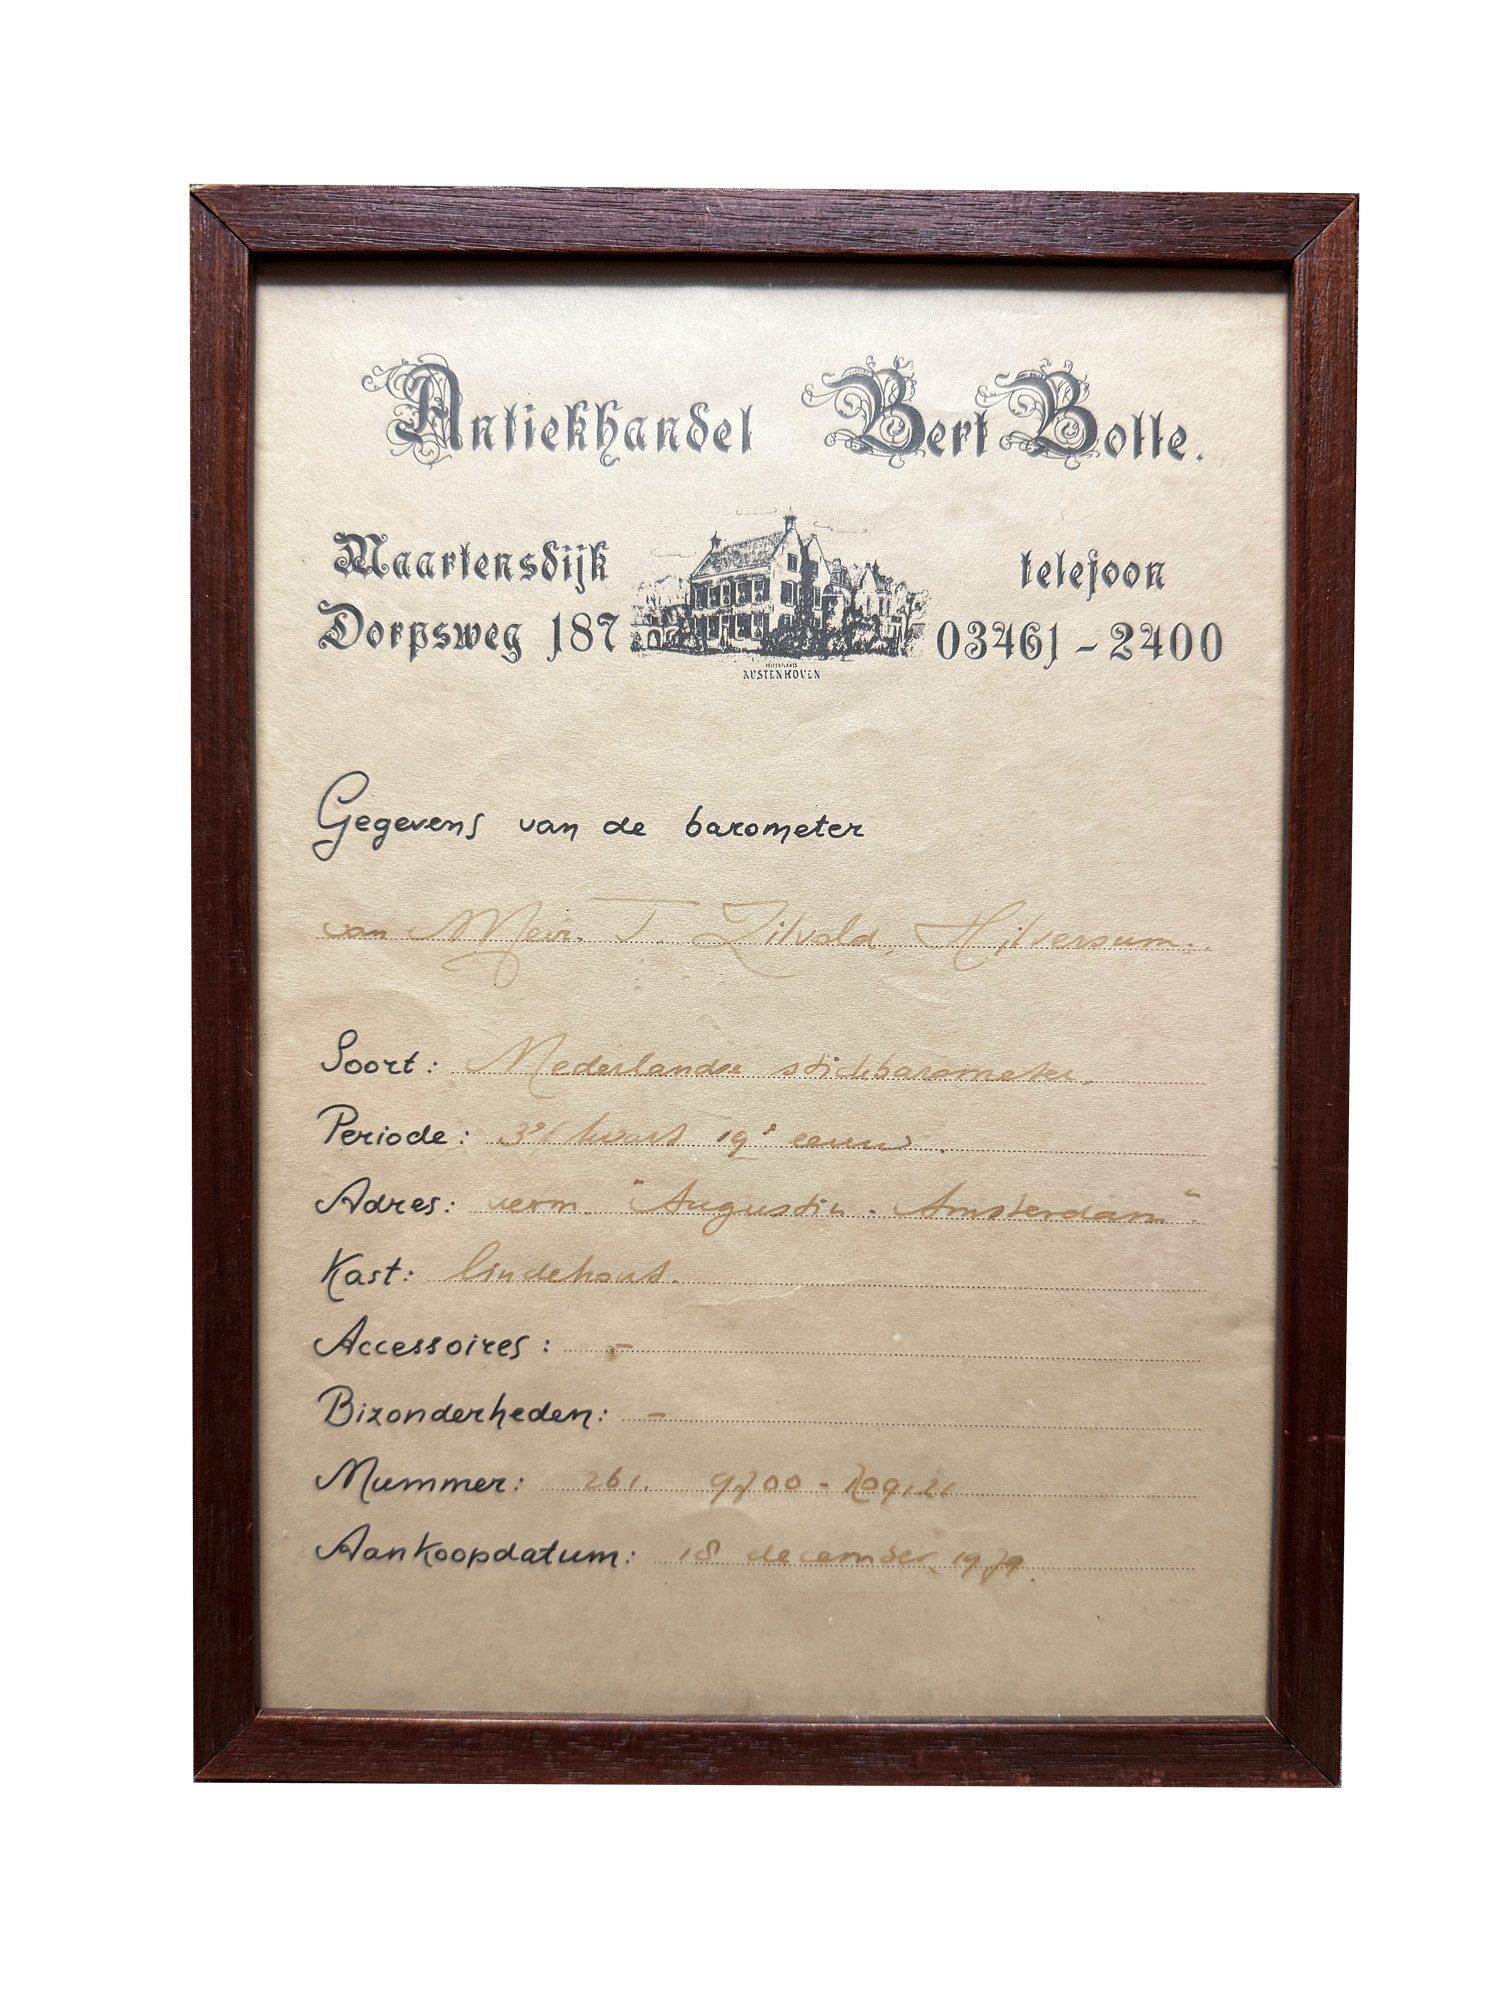 Antiekhandel Bert Bolle.
Maartensdijk telefoon
Dorpsweg 187 03461-2400
RUSTENHOVEN
Gegevens van de barometer
van Mevr. T. Zilvold, Hilversum.
Soort: Nederlandse stickbarometer.
Periode: 3e kwart 19e eeuw.
Adres: verm. "Augustin. Amsterdam".
Kast: lindehout.
Accessoires: -
Bizonderheden: -
Nummer: 261. 9700 -
Aankoopdatum: 18 december 1979.